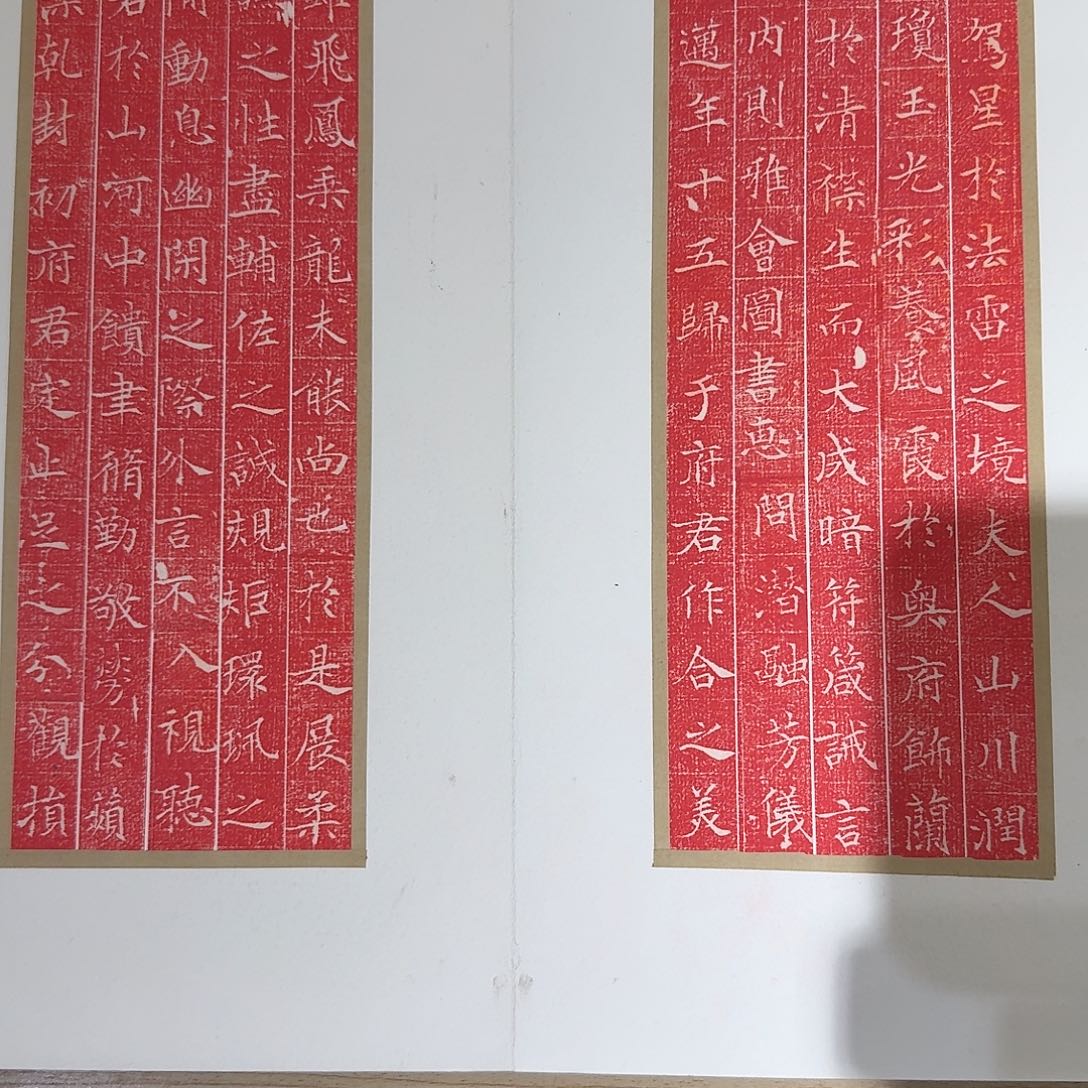 駕星於法雷之境夫人山川潤
瓊玉光彩養風霞於奧府飾蘭
於清襟生而大成暗符箴誡言
内則雅會圖書惠問潛融芳儀
邁年十五歸于府君作合之美
飛鳳乘龍未能尚也於是展柔
之性盡輔佐之誠規矩環珮之
動息幽閑之際外言不入視聽
於山河中饋聿脩勤敬勞於蘋
乾封初府君定止足之分觀損